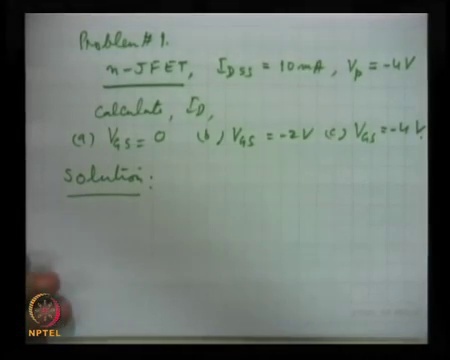 Problem # 1.
n-JFET, IDSS = 10 mA, Vp = -4V
Calculate, ID,
(a) VGS = 0 (b) VGS = -2V (c) VGS = -4V.
Solution:
NPTEL